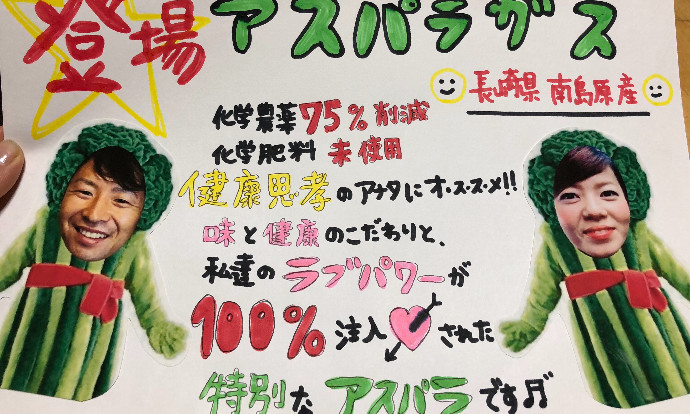 登場 アスパラガス
長崎県 南島原産
化学農薬75%削減
化学肥料 未使用
健康思孝のアナタにオ・ス・ス・メ!!
味と健康のこだわりと、
私達のラブパワーが
100%注入された
特別なアスパラです♬